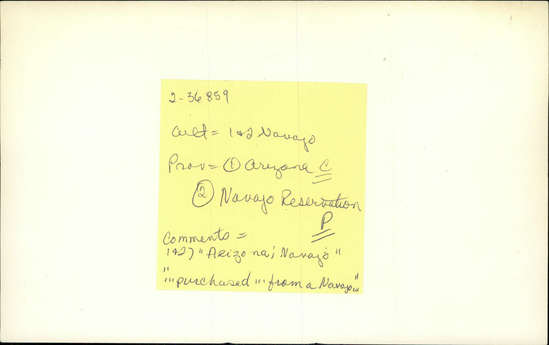 2-36859
Cult = 1+2 Navajo
Prov = ① Arizona C
② Navajo Reservation
P
Comments =
1+2) "Arizona; Navajo"
"...purchased ... from a Navajo..."